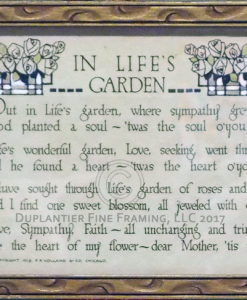 IN LIFE'S
GARDEN
Out in Life's garden, where sympathy gro
od planted a soul ~ 'twas the soul o' you
's wonderful garden, Love, seeking, went th
d he found a heart ~ 'twas the heart o' yo
have sought through Life's garden of roses and
d I find one sweet blossom, all jeweled with d
DUPLANTIER FINE FRAMING, LLC 2017
ve, Sympathy, Faith ~ all unchanging and tru
e the heart of my flower ~ dear Mother, 'tis
P.F. VOLLAND & CO. CHICAGO.